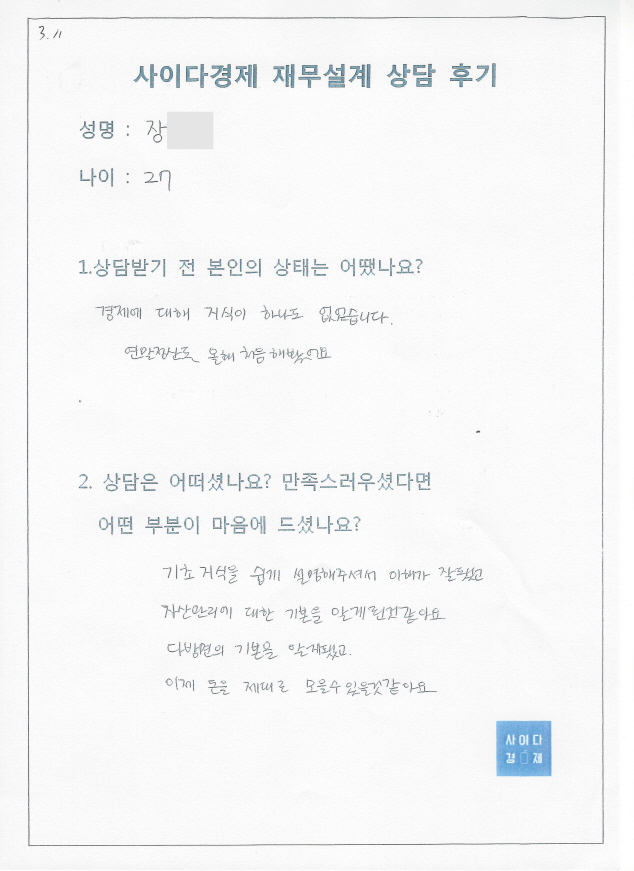 3. 11
사이다경제 재무설계 상담 후기
성명 : 장
나이 : 27
1.상담받기 전 본인의 상태는 어땠나요?
경제에 대해 지식이 하나도 없었습니다.
연말정산도 올해 처음 해봤어요
2. 상담은 어떠셨나요? 만족스러우셨다면
어떤 부분이 마음에 드셨나요?
기초 지식을 쉽게 설명해주셔서 이해가 잘됐고
자산관리에 대한 기본을 알게된것같아요
다방면의 기본을 알게됐고.
이제 돈을 제대로 모을수있을것같아요
사이다
경제